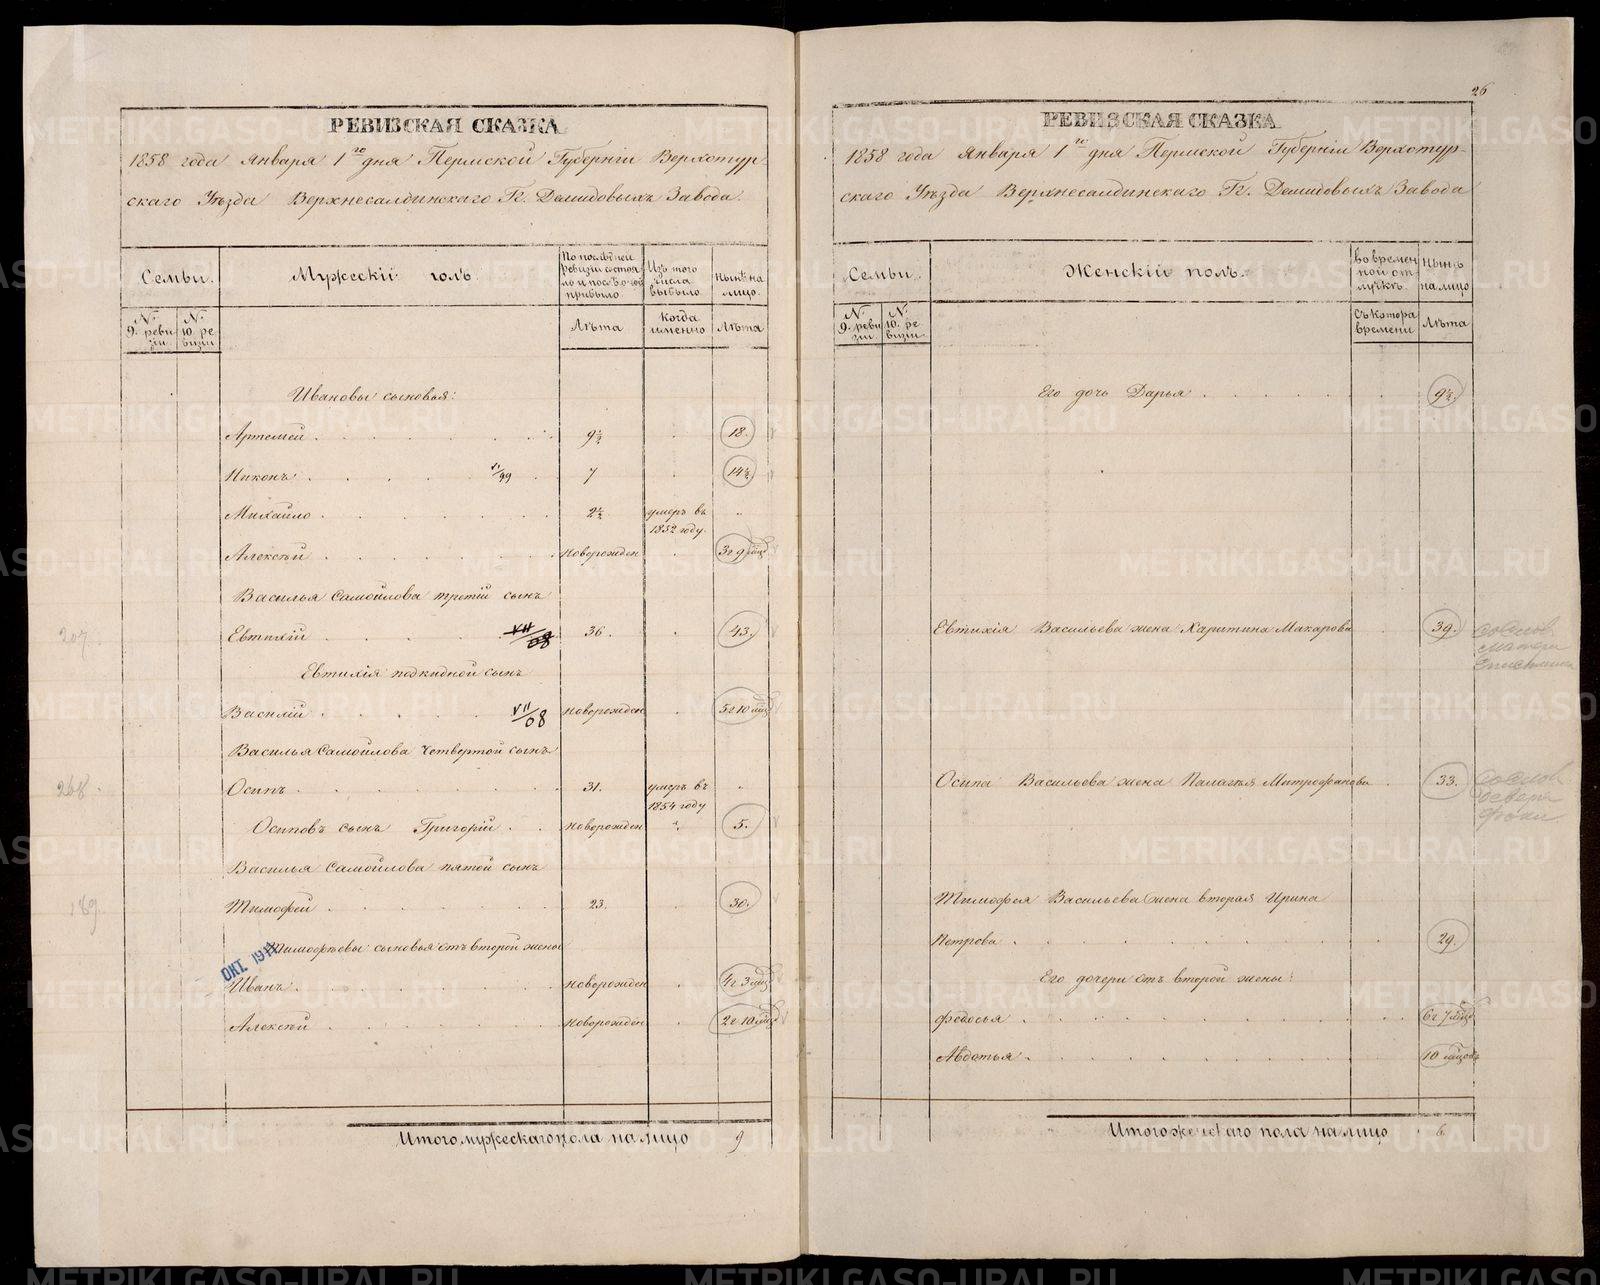 РЕВИЗСКАЯ СКАЗКА
1858 года Января 1го дня Пермской Губерніи Верхотур-
скаго Уѣзда Верхнесалдинскаго Гг. Демидовыхъ Завода.
Семьи.
Мужескій полъ.
По послѣдней ревизіи состояло и послѣ оной прибыло
Изъ того числа выбыло
Нынѣ на лицо.
№ 9. ревизіи
№ 10. ревизіи
Лѣта
Когда именно
Лѣта
Ивановы сыновья:
Артемей 9½ 18.
Никонъ VI/99 7 14½
Михайло 2½ умеръ въ 1852 году.
Алексѣй новорожден 3 г 9 мѣц
Василья Самойлова третій сынъ
207. Евтихій VII/08 36. 43.
Евтихія подкидной сынъ
Василій VII/08 новорожден 5 г 10 мѣц
Василья Самойлова четвертой сынъ
268. Осипъ 31. умеръ въ 1854 году
Осиповъ сынъ Григорій новорожден 5.
Василья Самойлова пятой сынъ
189. Тимофей 23. 30.
Тимофѣевы сыновья отъ второй жены
ОКТ. 1911
Иванъ новорожден 4 г 3 мѣц
Алексѣй новорожден 2 г 10 мѣц
Итого мужескаго пола на лицо 9
26
РЕВИЗСКАЯ СКАЗКА
1858 года Января 1го дня Пермской Губерніи Верхотур-
скаго Уѣзда Верхнесалдинскаго Гг. Демидовыхъ Завода
Семьи.
Женскій полъ.
Во временной отлучкѣ.
Нынѣ на лицо
№ 9. ревизіи
№ 10. ревизіи
Съ котора времени
Лѣта
Его дочь Дарья 9½.
Евтихія Васильева жена Харитина Макарова 39.
Осипа Васильева жена Палагья Митрофанова 33.
Тимофея Васильева жена вторая Ирина
Петрова 29.
Его дочери отъ второй жены:
Федосья 6 г 7 мѣц
Авдотья 10 мѣцовъ
Итого женскаго пола на лицо 6
METRIKI.GASO-URAL.RU